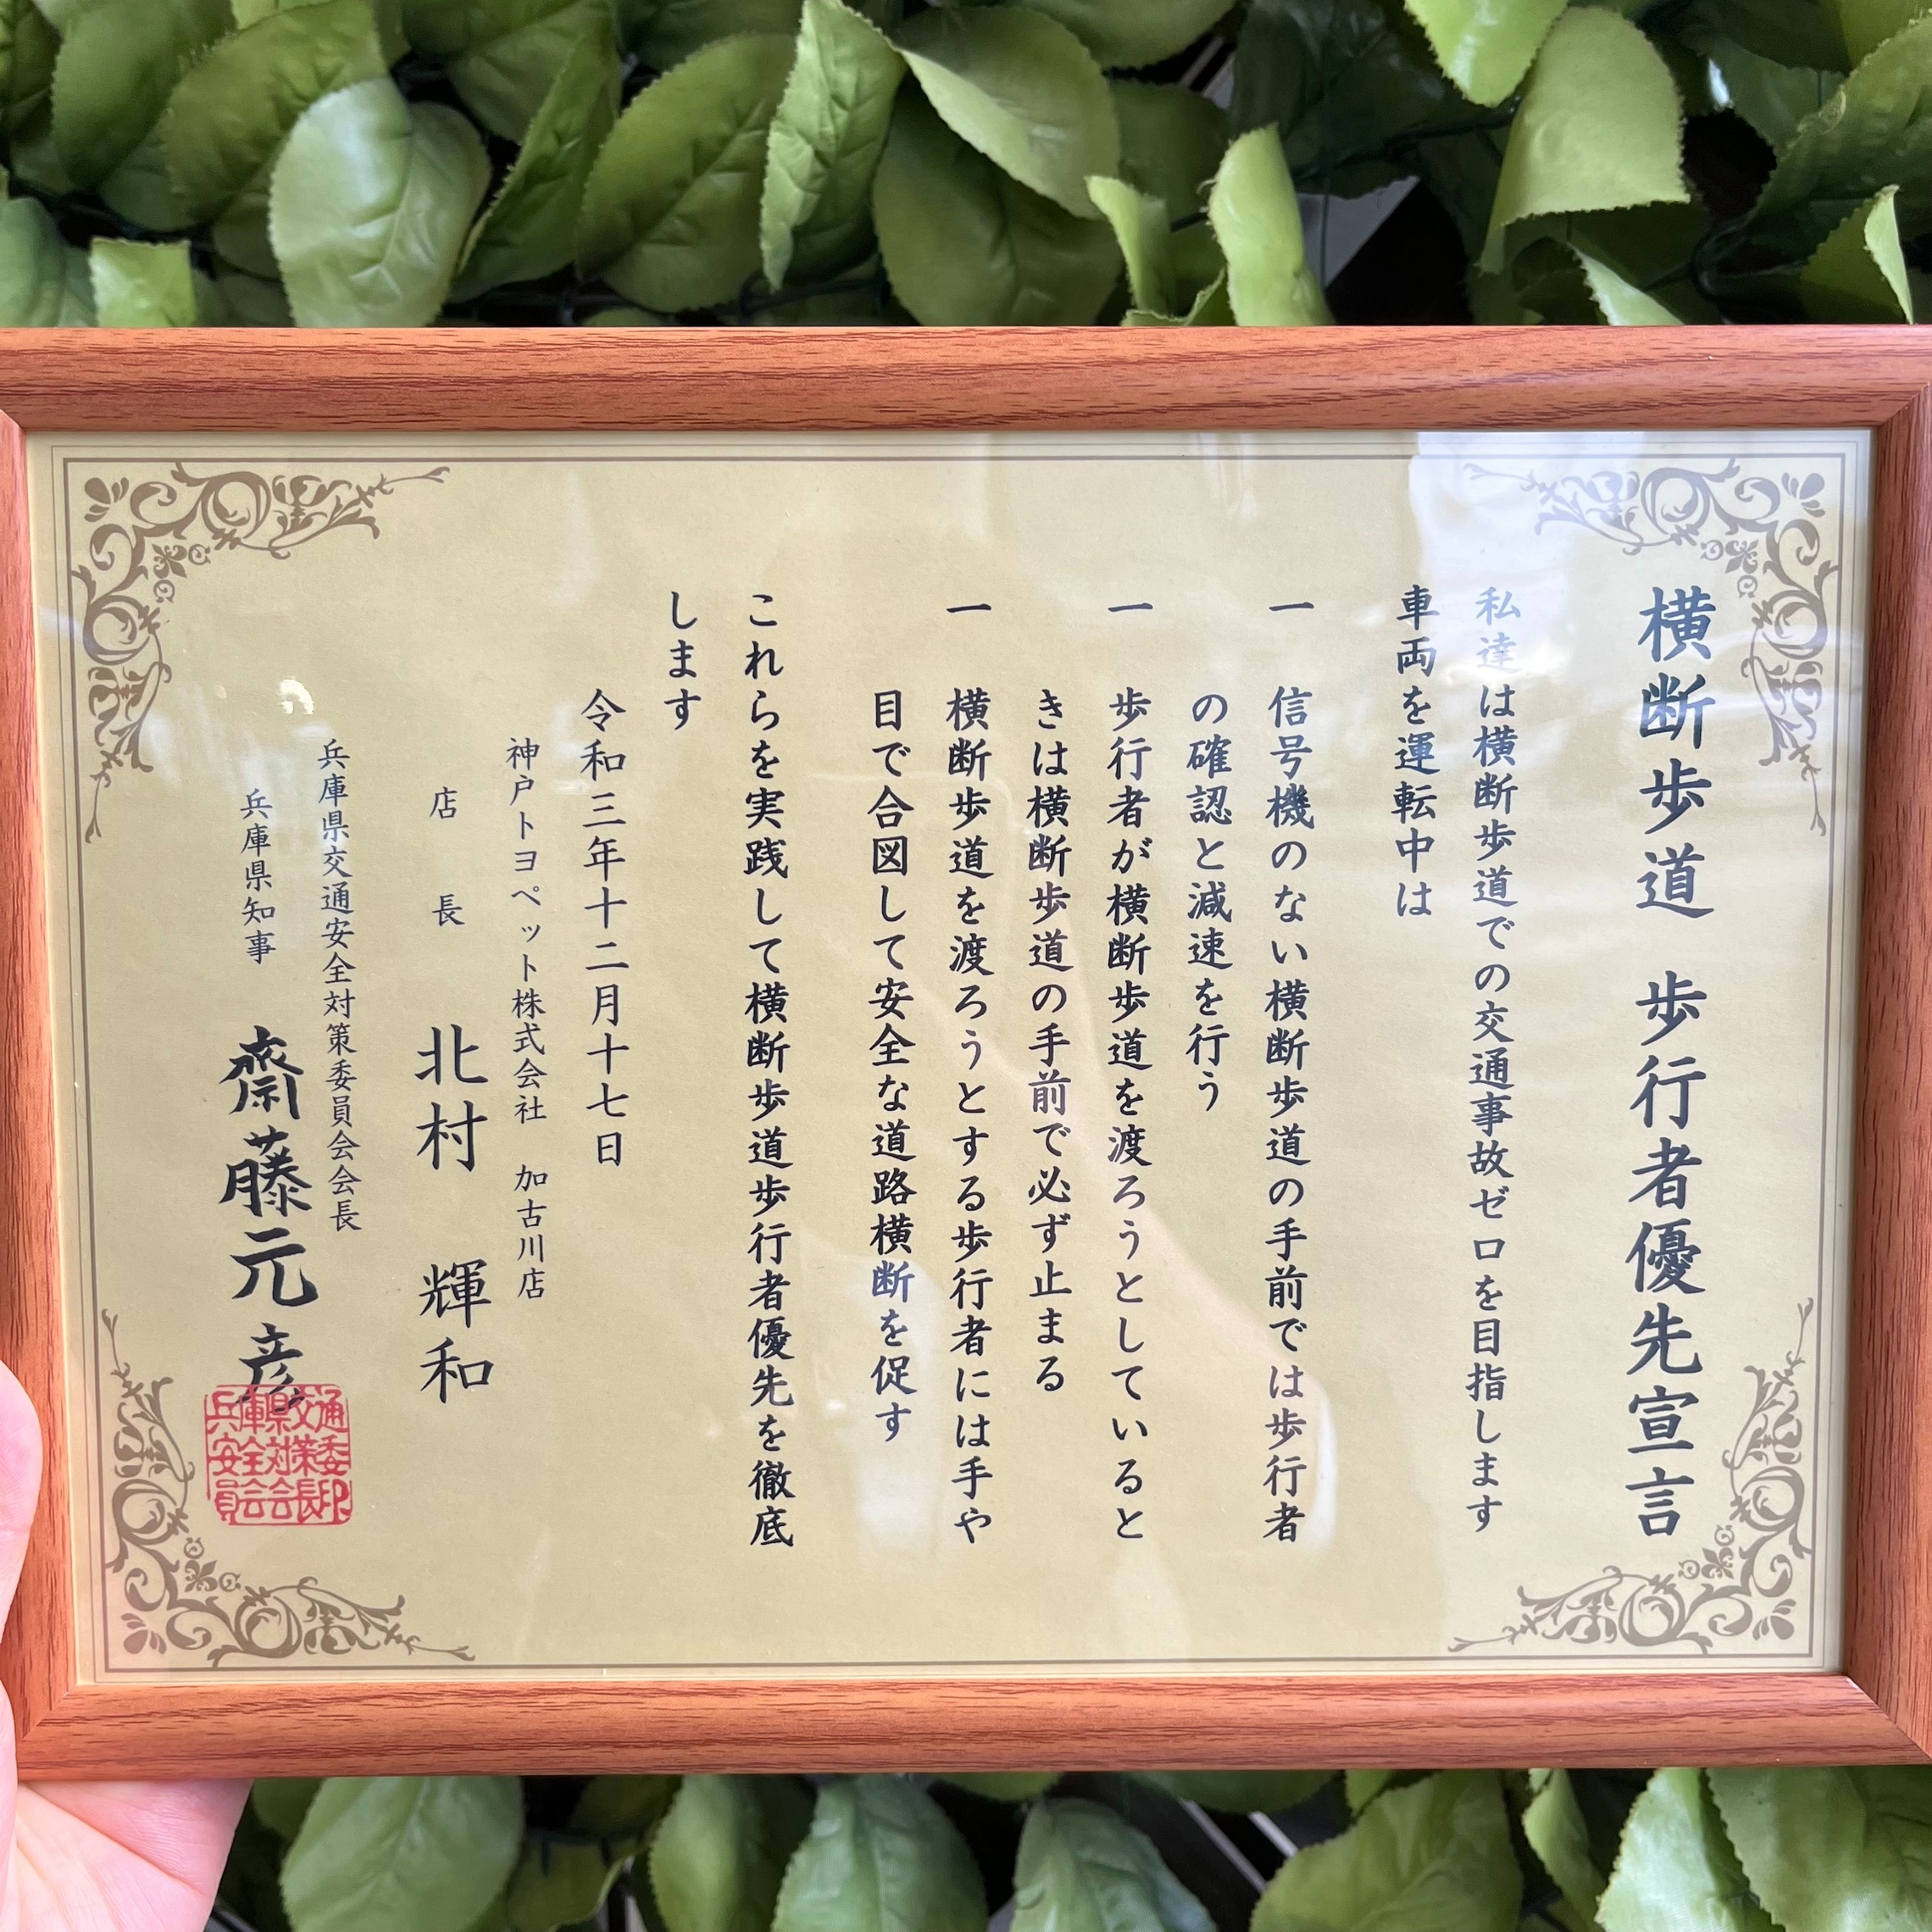 横断歩道　歩行者優先宣言
私達は横断歩道での交通事故ゼロを目指します
車両を運転中は
一　信号機のない横断歩道の手前では歩行者
の確認と減速を行う
一　歩行者が横断歩道を渡ろうとしていると
きは横断歩道の手前で必ず止まる
一　横断歩道を渡ろうとする歩行者には手や
目で合図して安全な道路横断を促す
これらを実践して横断歩道歩行者優先を徹底
します
令和三年十二月十七日
神戸トヨペット株式会社　加古川店
店長　北村　輝和
兵庫県交通安全対策委員会会長
兵庫県知事　齋藤元彦
兵庫県交通
安全対策委
員会会長印